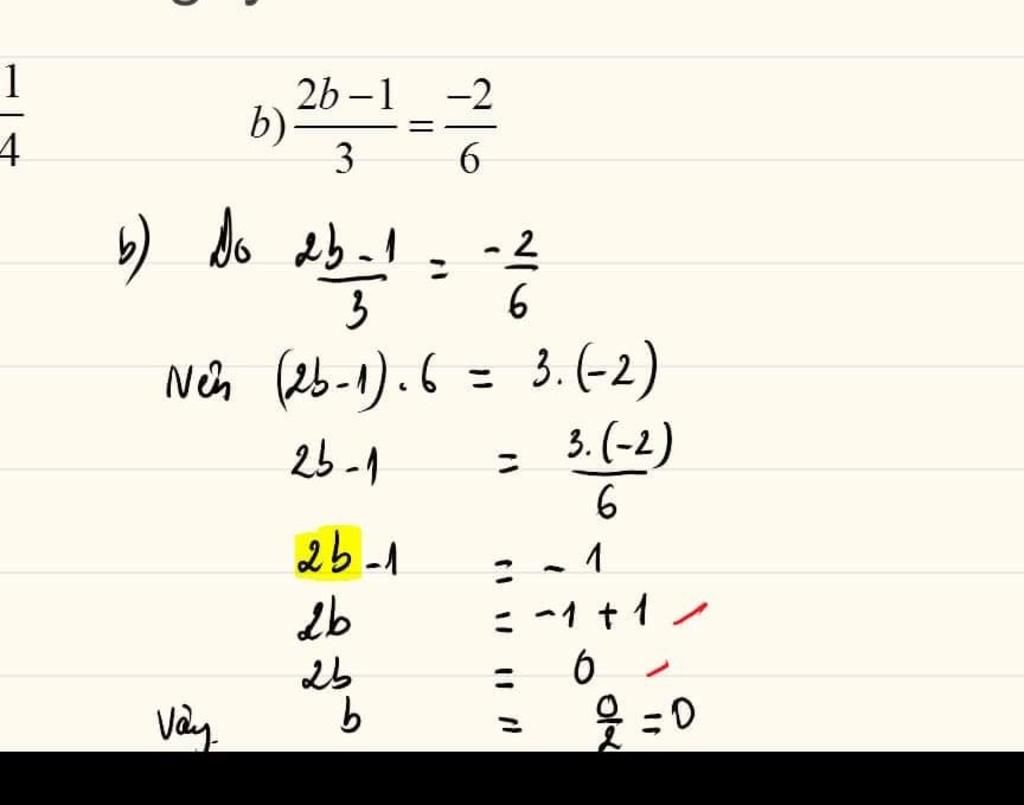 1/4
b) (2b−1)/3 = −2/6
b) Do (2b-1)/3 = -2/6
Nên (2b-1).6 = 3.(-2)
2b-1 = 3.(-2)/6
2b-1 = -1
2b = -1+1
2b = 0
Vậy b = 0/2 = 0